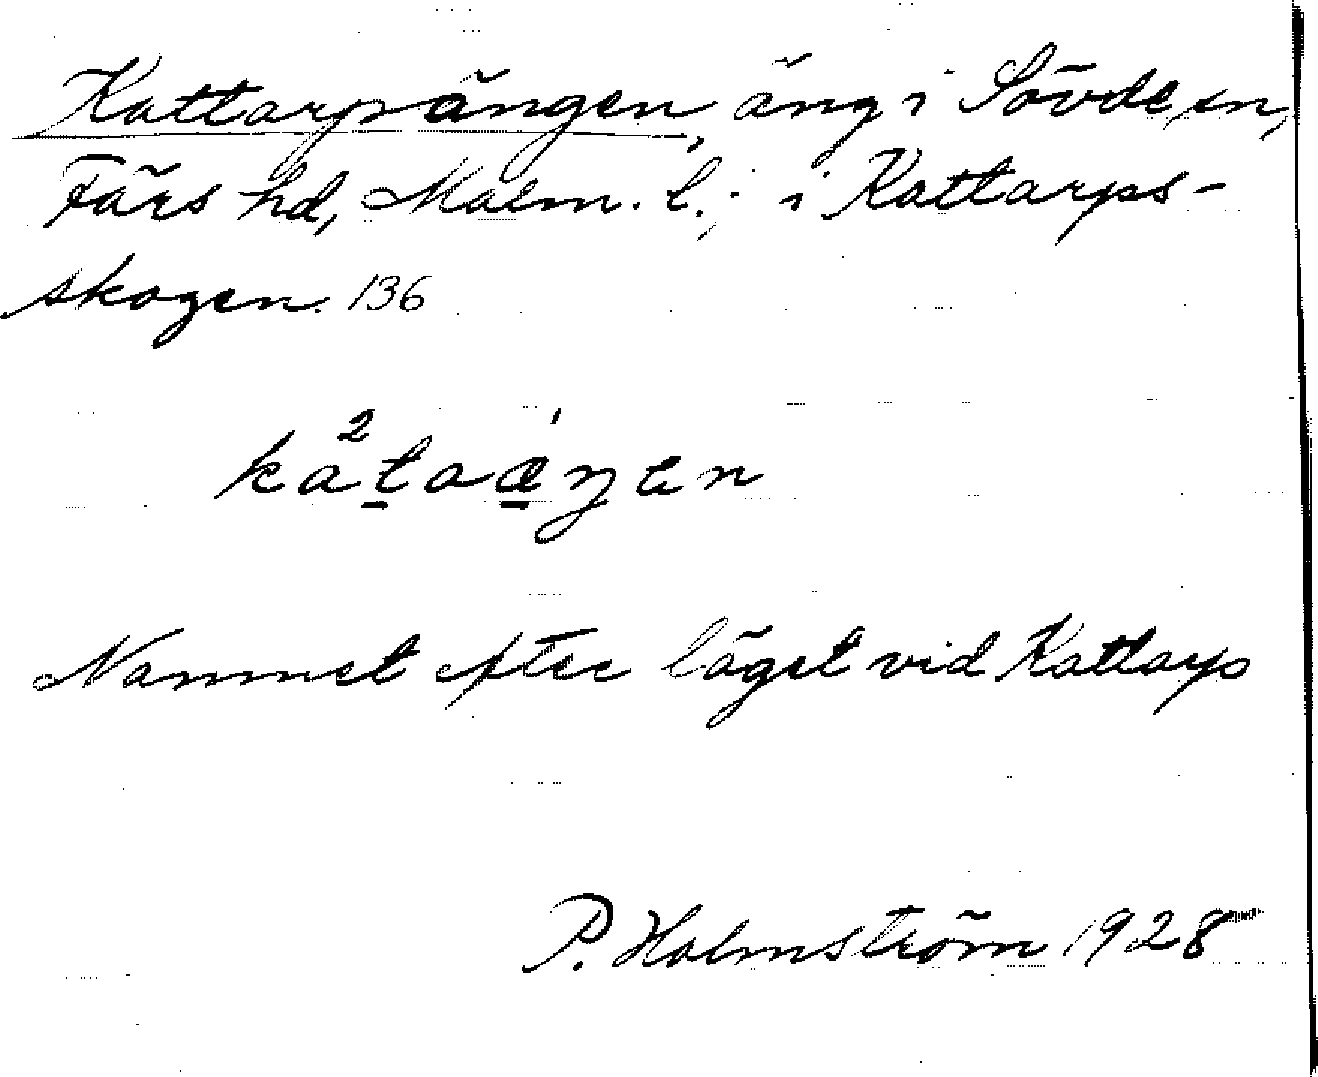 Kattarpängen, äng i Sövde sn,
Färs hd, Malm. l.; i Kattarps-
skogen. 136
Namnet efter läget vid Kattarp
P. Holmström 1928